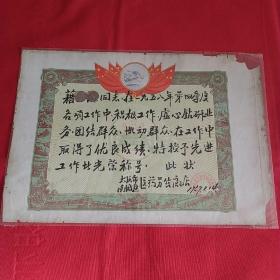 藉 同志在一九五八年第四季度
各项工作中积极工作虚心钻研业
务团结群众推动群众在工作中
取得了优良成绩特授予先进
工作者光荣称号 此状
医药